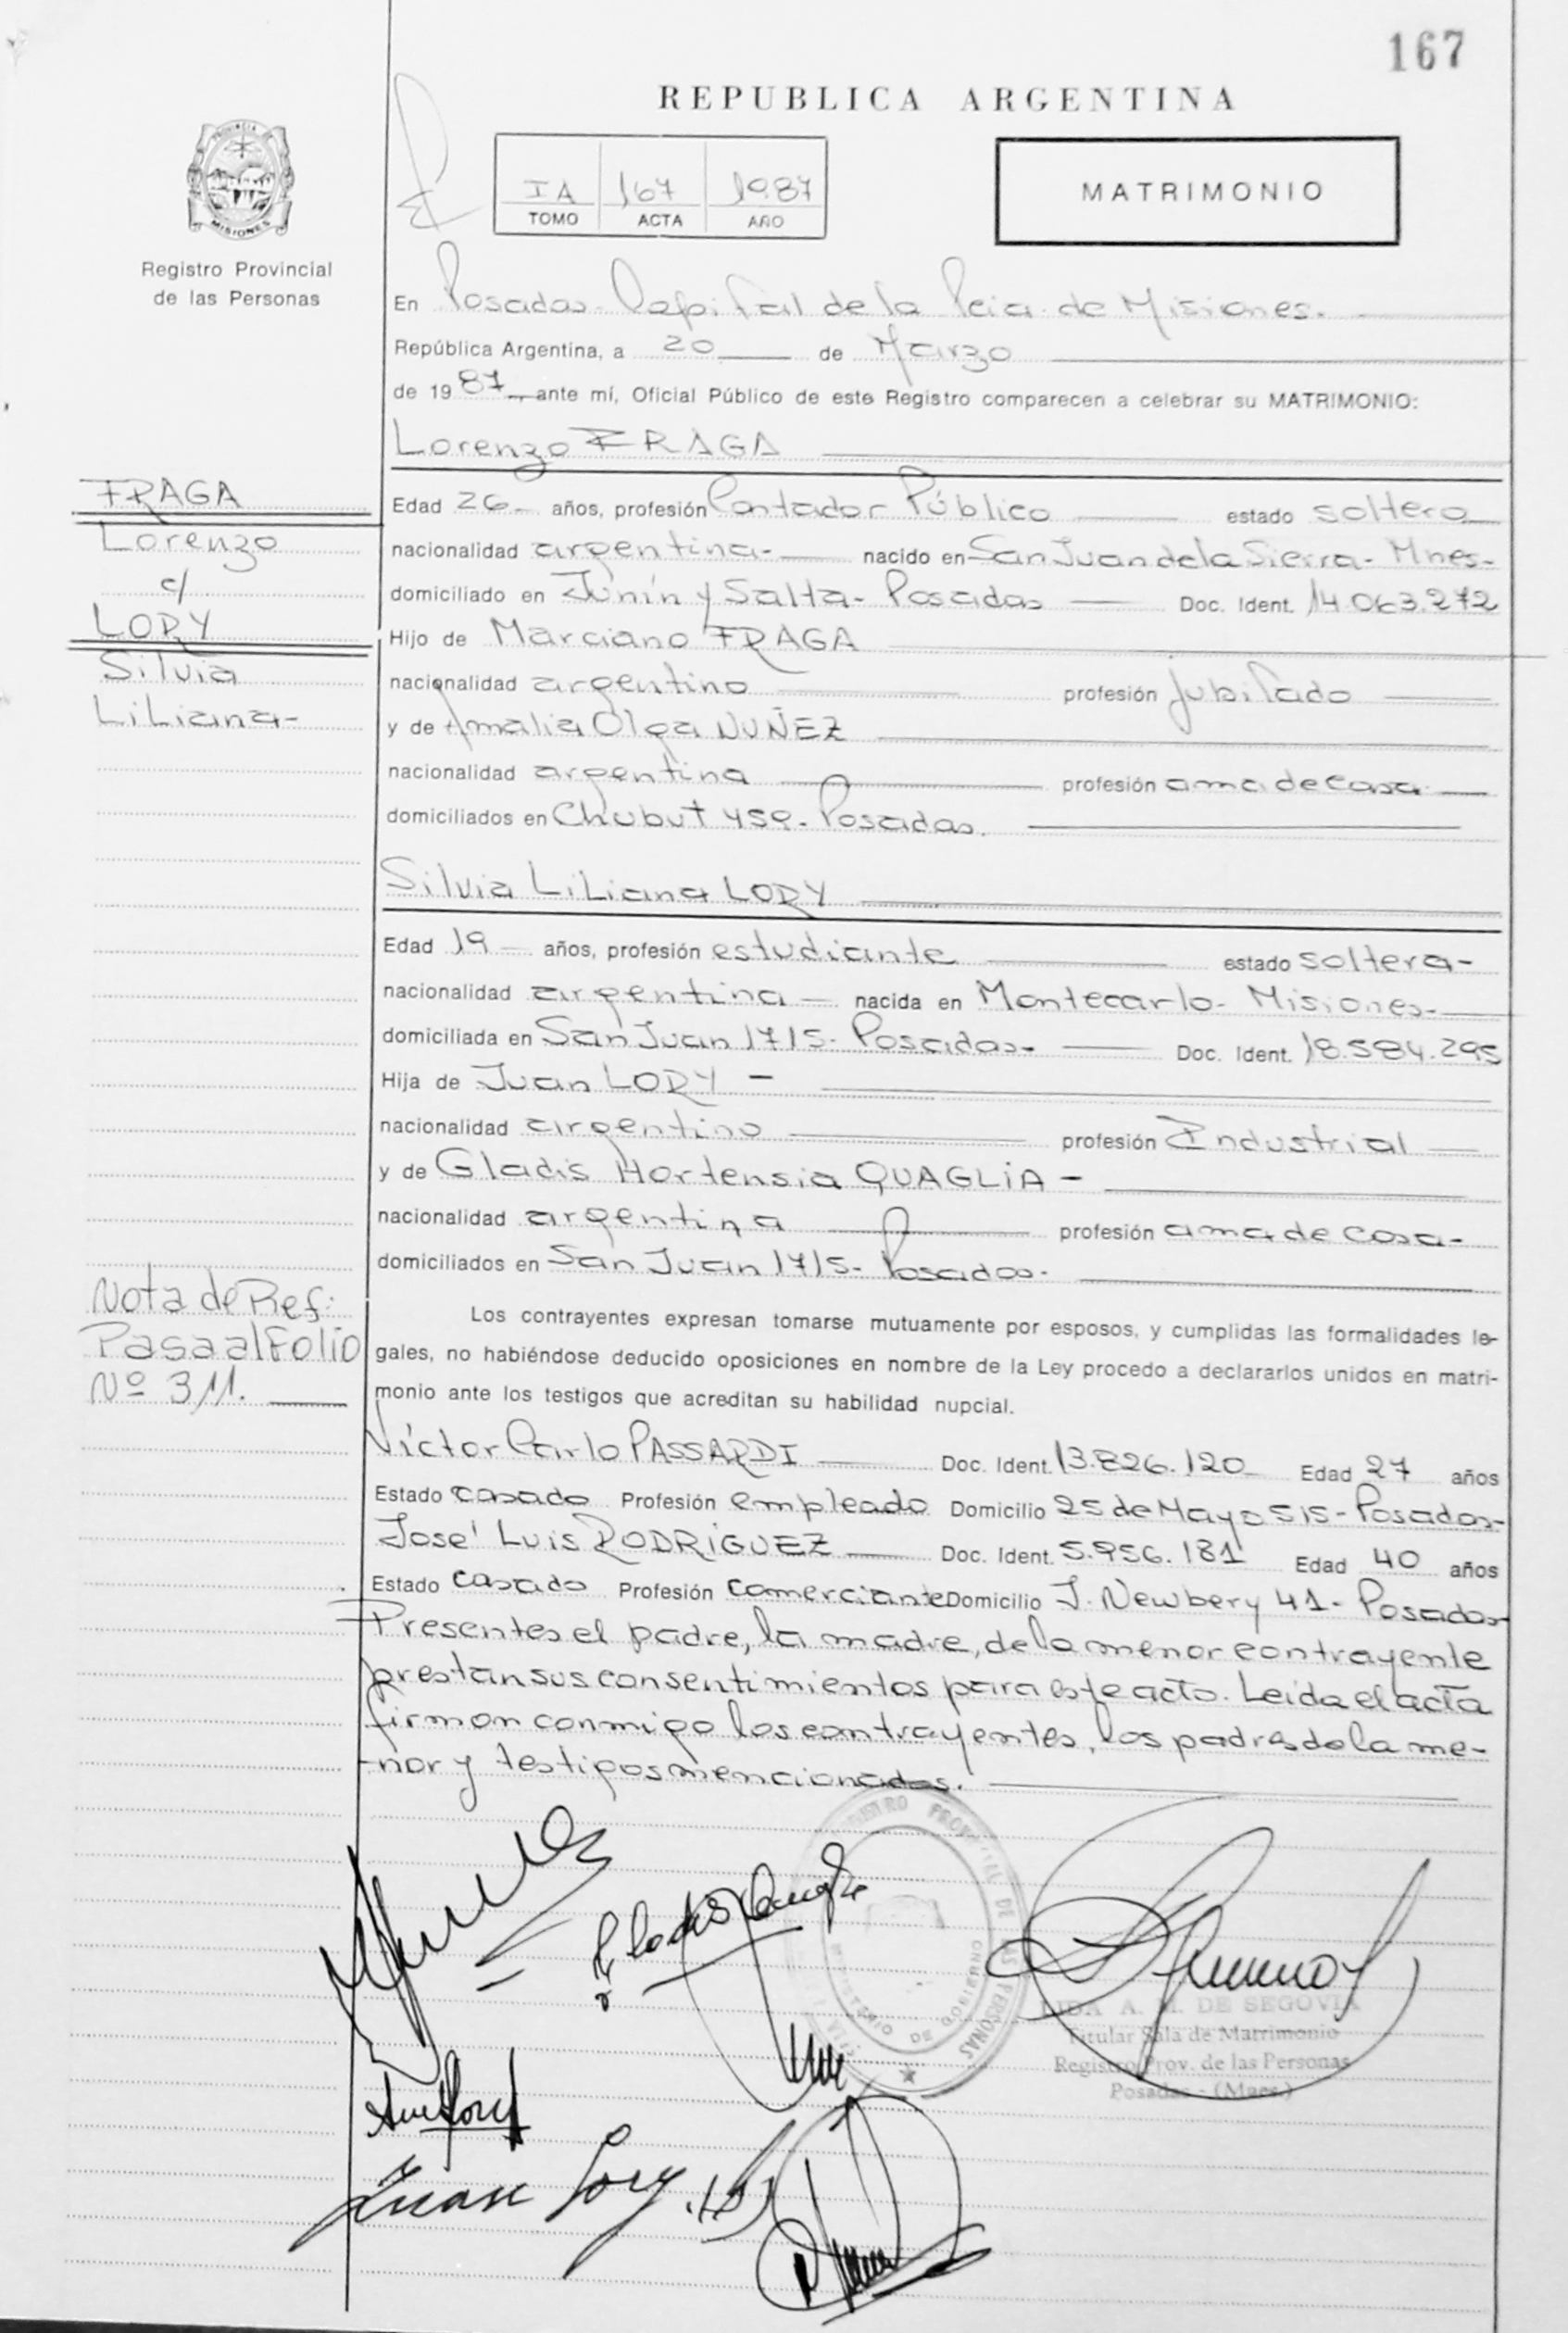 167
REPUBLICA ARGENTINA
PROVINCIA DE
MISIONES
Registro Provincial
de las Personas
IA 167 1987
TOMO ACTA AÑO
MATRIMONIO
En Posadas-Capital de la Pcia de Misiones.
República Argentina, a 20 de Marzo
de 1987, ante mí, Oficial Público de este Registro comparecen a celebrar su MATRIMONIO:
Lorenzo FRAGA
FRAGA
Lorenzo
c/
LORY
Silvia
Liliana-
Edad 26- años, profesión Contador Público estado soltero
nacionalidad argentina- nacido en San Juan de la Sierra- Mnes-
domiciliado en Junín y Salta- Posadas Doc. Ident. 14.063.272
Hijo de Marciano FRAGA
nacionalidad argentino profesión jubilado
y de Amalia Olga NUÑEZ
nacionalidad argentina profesión ama de casa
domiciliados en Chubut 459- Posadas.
Silvia Liliana LORY
Edad 19 años, profesión estudiante estado soltera-
nacionalidad argentina nacida en Montecarlo- Misiones-
domiciliada en San Juan 1715- Posadas- Doc. Ident. 18.584.295
Hija de Juan LORY -
nacionalidad argentino profesión Industrial
y de Gladis Hortensia QUAGLIA -
nacionalidad argentina profesión ama de casa-
domiciliados en San Juan 1715- Posadas-
Nota de Ref:
Pasa al Folio
Nº 311.
Los contrayentes expresan tomarse mutuamente por esposos, y cumplidas las formalidades le-
gales, no habiéndose deducido oposiciones en nombre de la Ley procedo a declararlos unidos en matri-
monio ante los testigos que acreditan su habilidad nupcial.
Víctor Carlo PASSARDI Doc. Ident. 13.826.120 Edad 27 años
Estado casado Profesión empleado Domicilio 25 de Mayo 515- Posadas-
José Luis RODRIGUEZ Doc. Ident. 5.956.181 Edad 40 años
Estado casado Profesión comerciante Domicilio J. Newbery 41- Posadas
Presentes el padre, la madre, de la menor contrayente
prestan sus consentimientos para este acto. Leída el acta
firman conmigo los contrayentes, los padres de la me-
nor y testigos mencionados.
REGISTRO PROVINCIAL DE LAS PERSONAS
MINISTERIO DE GOBIERNO
LIDA A. M. DE SEGOVIA
Titular Sala de Matrimonio
Registro Prov. de las Personas
Posadas - (Mnes.)
Juan Lory